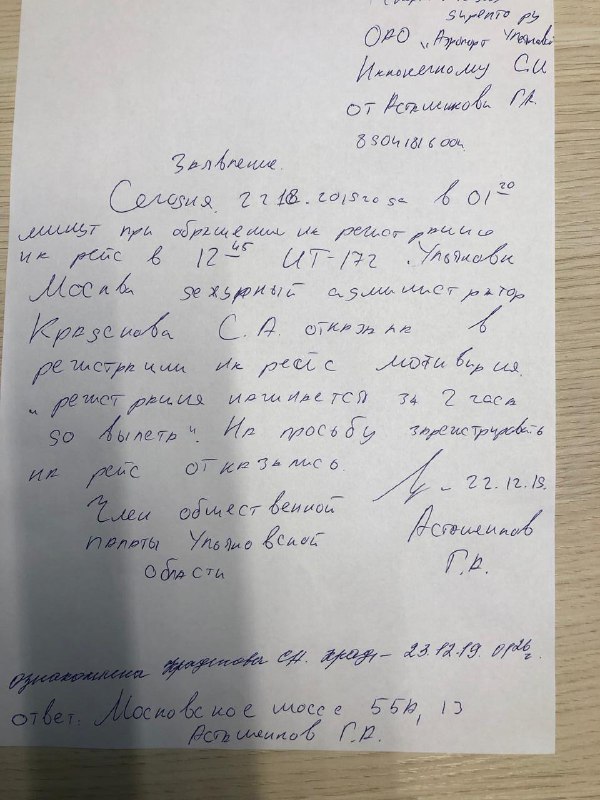 директору
ОАО „Аэропорт Ульяновск
от Асташенкова Г.А.
89041816004
Заявление.
Сегодня 22 2019 года в 01 20
минут при обращении на регистрацию
на рейс в 12 45 ИТ-172 Ульяновск
Москва дежурный администратор
С.А. отказала в
регистрации на рейс мотивируя
„регистрация начинается за 2 часа
до вылета“. На просьбу зарегистрировать
на рейс отказались.
Член общественной
палаты Ульяновской
области
22.12.19.
Асташенков
Г.А.
ознакомлена С.А. 23.12.19.
ответ: Московское шоссе 55А, 13
Асташенков Г.А.